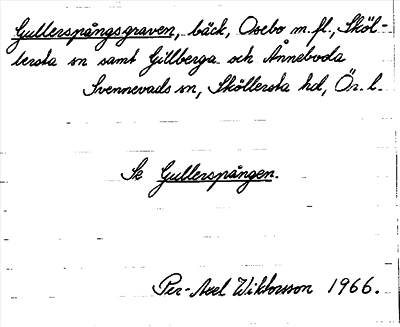 Gullerspångsgraven, bäck, Osebo m.fl., Sköl-
lersta sn samt Gillberga och Anneboda
Svennevads sn, Sköllersta hd, Ör. l.
Se Gullerspången.
Per-Axel Wiktorsson 1966.